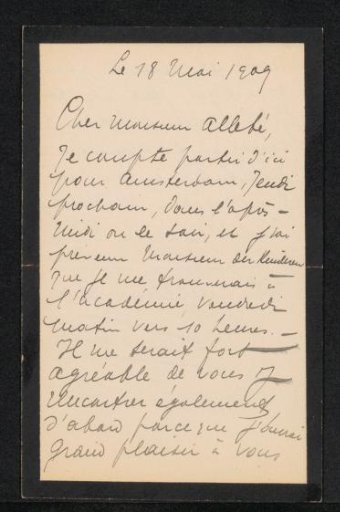 Le 18 Mai 1909
Cher Monsieur Allebé,
Je compte partir d'ici
pour Amsterdam, Jeudi
prochain, dans l'après-
midi ou le soir, et j'ai
prévenu Monsieur der Kinderen
que je me trouverais à
l'académie, vendredi
matin vers 10 heures. —
Il me serait fort
agréable de vous y
rencontrer également
d'abord parce que j'aurai
grand plaisir à vous